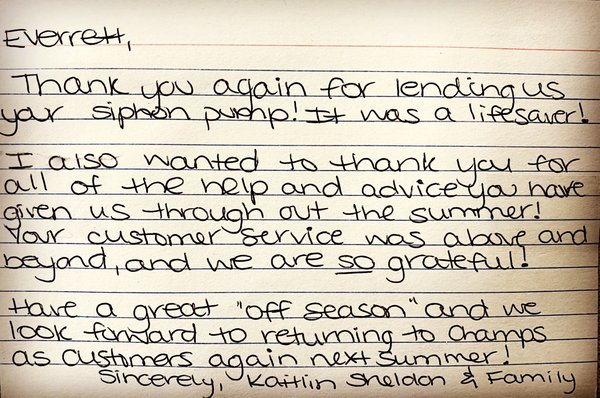 Everrett,
Thank you again for lending us
your siphon pump! It was a lifesaver!
I also wanted to thank you for
all of the help and advice you have
given us through out the summer!
Your customer service was above and
beyond, and we are so grateful!
Have a great "off season" and we
look forward to returning to Champs
as customers again next summer!
Sincerely, Kaitlin Sheldon & Family